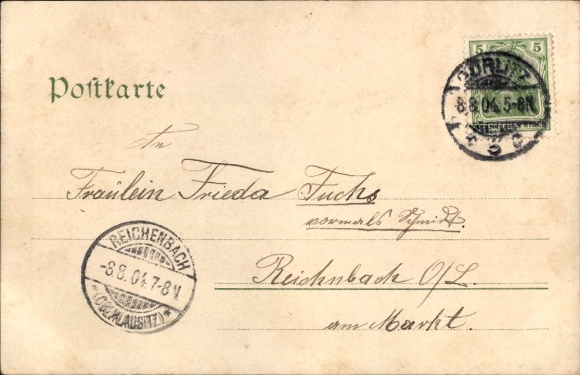 Postkarte
5 5
GÖRLITZ
8.8.04. 5-6N.
* 3 c
An
Fräulein Frieda Fuchs
vormals Schmidt.
Reichnbach O/L.
am Markt.
REICHENBACH
-8.8.04.7-8V.
*(OBERLAUSITZ)*